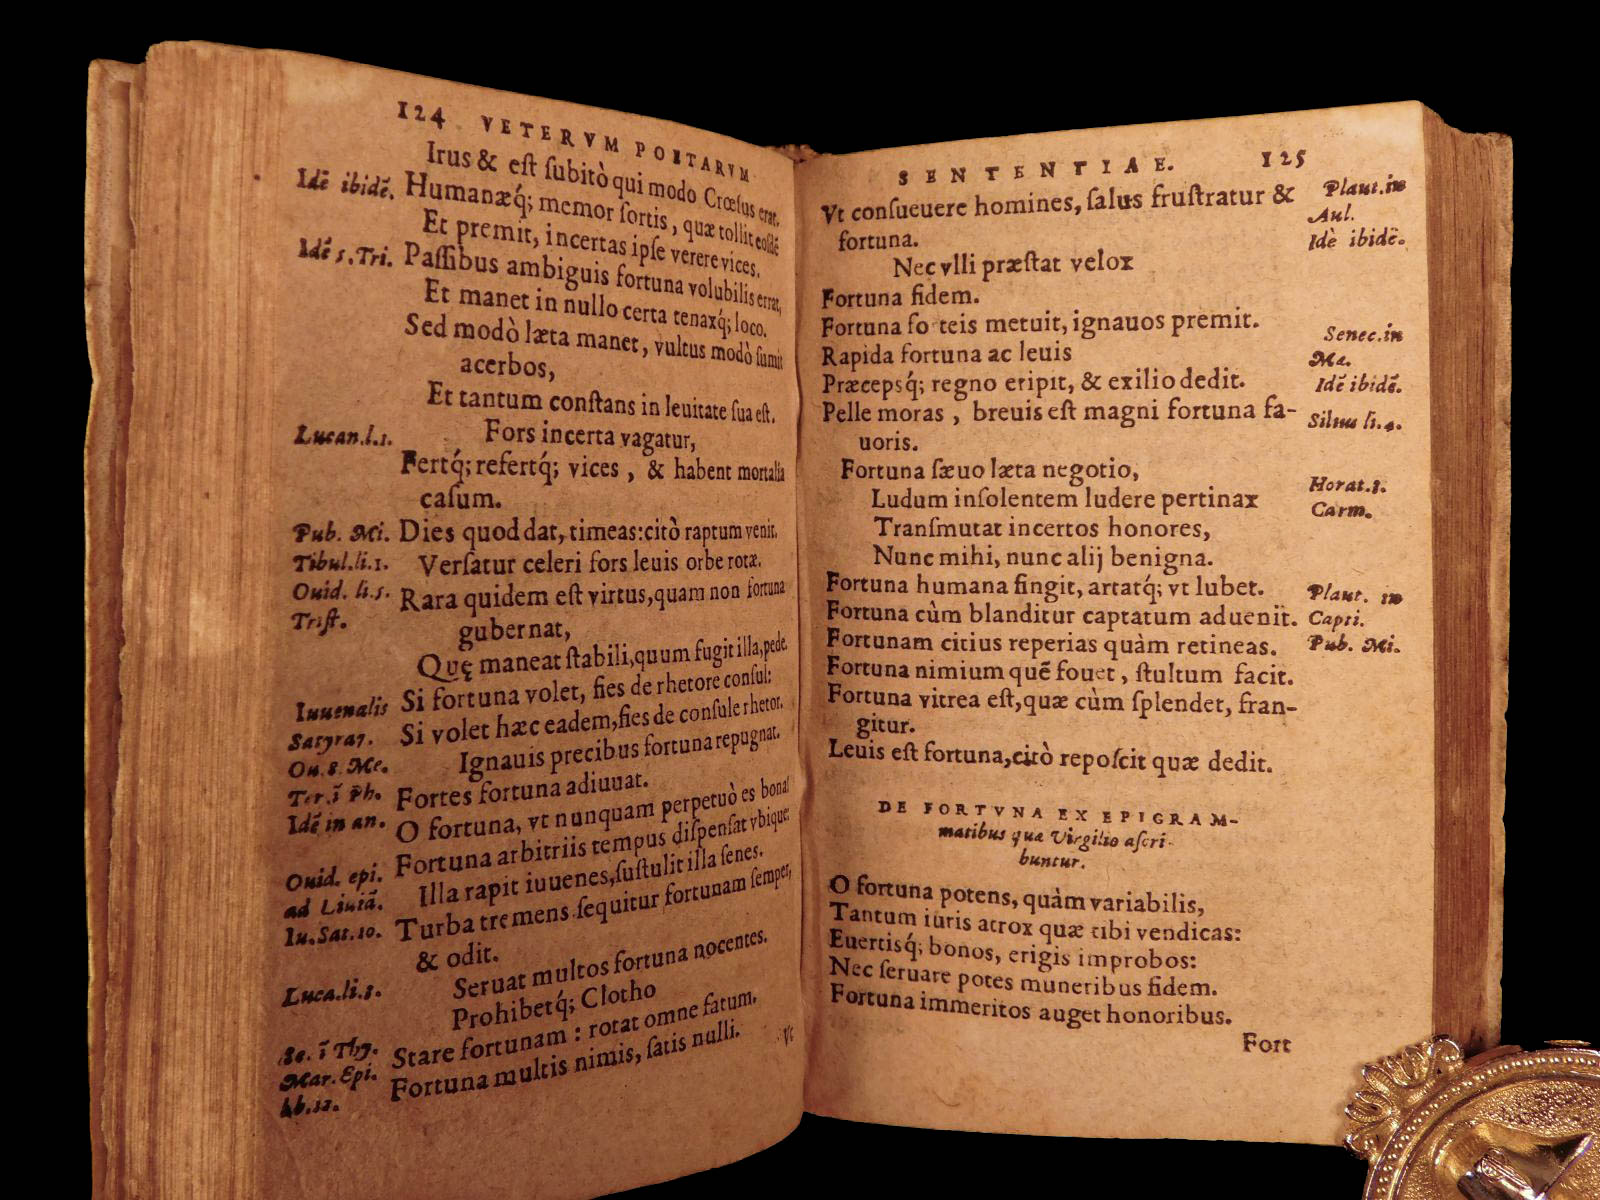 124 VETERVM POETARVM
Irus & eſt ſubitò qui modo Crœſus erat.
Idē ibidē. Humanæq́; memor ſortis, quæ tollit eoſdē
Et premit, incertas ipſe verere vices.
Idē 5. Tri. Paſſibus ambiguis fortuna volubilis errat,
Et manet in nullo certa tenaxq́; loco.
Sed modò læta manet, vultus modò ſumit
acerbos,
Et tantum conſtans in leuitate ſua eſt.
Lucan. l. 1. Fors incerta vagatur,
Fertq́; refertq́; vices, & habent mortalia
caſum.
Pub. Mi. Dies quod dat, timeas: citò raptum venit.
Tibul. li. 1. Verſatur celeri fors leuis orbe rotæ.
Ouid. li. 5. Rara quidem eſt virtus, quam non fortuna
Triſt. gubernat,
Quę maneat ſtabili, quum fugit illa, pede.
Iuuenalis Si fortuna volet, fies de rhetore conſul:
Satyra 7. Si volet hæc eadem, fies de conſule rhetor.
Ou. 8. Me. Ignauis precibus fortuna repugnat.
Ter. ī Ph. Fortes fortuna adiuuat.
Idē in an. O fortuna, vt nunquam perpetuò es bona!
Ouid. epi. Fortuna arbitriis tempus diſpenſat vbique:
ad Liuiā. Illa rapit iuuenes, ſuſtulit illa ſenes.
Iu. Sat. 10. Turba tremens ſequitur fortunam ſemper,
& odit.
Luca. li. 3. Seruat multos fortuna nocentes.
Prohibetq́; Clotho
Se. ī Thy. Stare fortunam: rotat omne fatum.
Mar. Epi. Fortuna multis nimis, ſatis nulli.
lib. 12. Vt
SENTENTIAE. 125
Vt conſueuere homines, ſalus fruſtratur & Plaut. in
fortuna. Aul.
Nec vlli præſtat velox Idē ibidē.
Fortuna fidem.
Fortuna fo teis metuit, ignauos premit. Senec. in
Rapida fortuna ac leuis Me.
Præcepsq́; regno eripit, & exilio dedit. Idē ibidē.
Pelle moras, breuis eſt magni fortuna fa- Silius li. 4.
uoris.
Fortuna ſæuo læta negotio, Horat. 3.
Ludum inſolentem ludere pertinax Carm.
Tranſmutat incertos honores,
Nunc mihi, nunc alij benigna.
Fortuna humana fingit, artatq́; vt lubet. Plaut. in
Fortuna cùm blanditur captatum aduenit. Capti.
Fortunam citius reperias quàm retineas. Pub. Mi.
Fortuna nimium quē fouet, ſtultum facit.
Fortuna vitrea eſt, quæ cùm ſplendet, fran-
gitur.
Leuis eſt fortuna, citò repoſcit quæ dedit.
DE FORTVNA EX EPIGRAM-
matibus quæ Virgilio aſcri-
buntur.
O fortuna potens, quàm variabilis,
Tantum iuris atrox quæ tibi vendicas:
Euertisq́; bonos, erigis improbos:
Nec ſeruare potes muneribus fidem.
Fortuna immeritos auget honoribus.
Fort